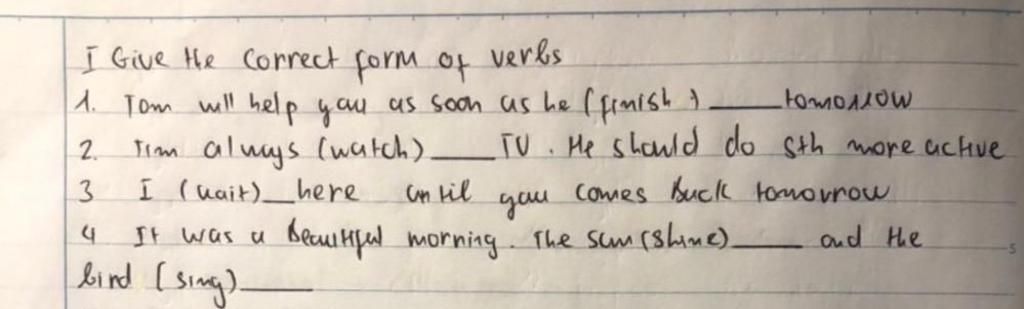 I Give the correct form of verbs
1. Tom will help you as soon as he (finish) ____ tomorrow
2. Tim always (watch) ____ TV. He should do sth more active
3 I (wait) __ here until you comes back tomorrow
4 It was a beautiful morning. The sun (shine) ____ and the
bird (sing) ____